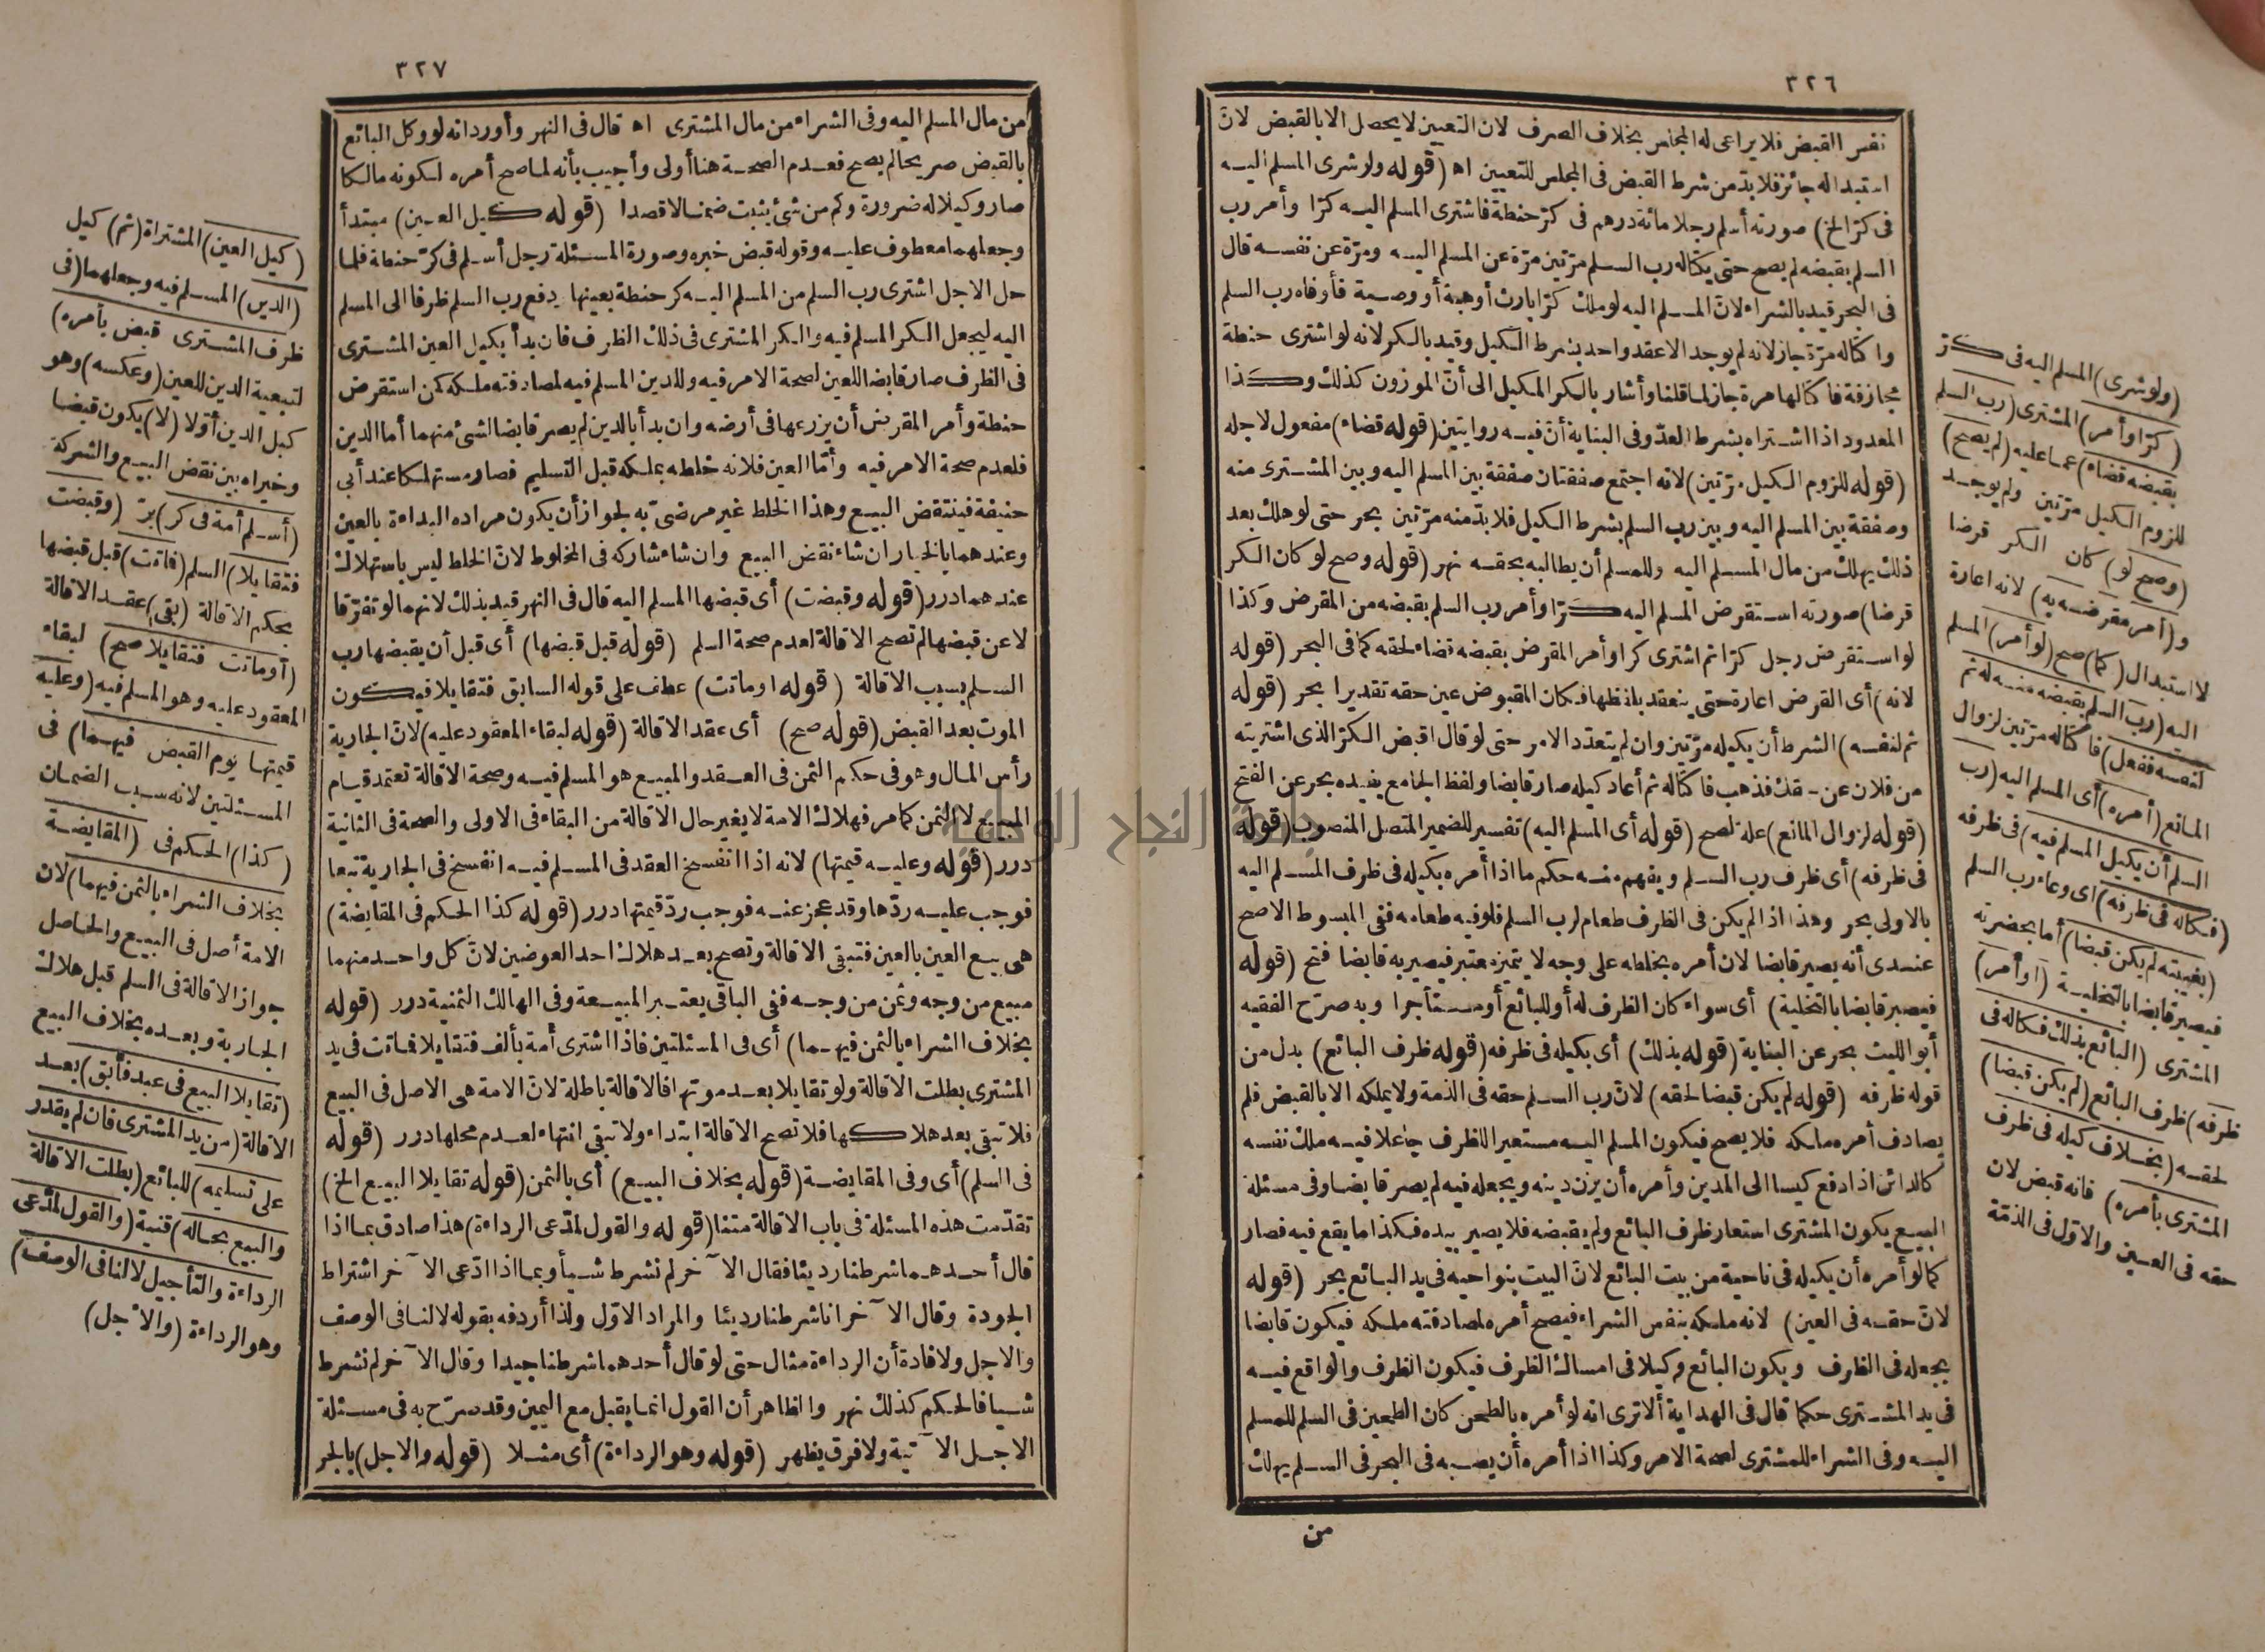 ٣٢٦
نفس القبض فلا يراعى له المجلس بخلاف الصرف لان التعيين لا يحصل الا بالقبض لانّ
استبداله جائز فلا بدّ من شرط القبض فى المجلس للتعيين اه (قوله ولو شرى المسلم اليه
فى كرّ الخ) صورته أسلم رجلا مائة درهم فى كرّ حنطة فاشترى المسلم اليه كرّا وأمر رب
السلم بقبضه لم يصح حتى يكتاله رب السلم مرّتين مرّة عن المسلم اليه ومرّة عن نفسه قال
فى البحر قيد بالشراء لانّ المسلم اليه لو ملك كرّا بارث أوهبة أو وصية فأوفاه رب السلم
واكتاله مرّة جاز لانه لم يوجد الا عقد واحد بشرط الكيل وقيد بالكر لانه لو اشترى حنطة
مجازفة فاكتالها مرة جاز لما قلنا وأشار بالكر المكيل الى أنّ الموزون كذلك وكذا
المعدود اذا اشتراه بشرط العدّ وفى البناية أنّ فيه روايتين (قوله قضاء) مفعول لاجله
(قوله للزوم الكيل مرّتين) لانه اجتمع صفقتان صفقة بين المسلم اليه وبين المشترى منه
وصفقة بين المسلم اليه وبين رب السلم بشرط الكيل فلا بدّ منه مرّتين بحر حتى لو هلك بعد
ذلك يهلك من مال المسلم اليه وللمسلم أن يطالبه بحقه نهر (قوله وصح لو كان الكر
قرضا) صورته استقرض المسلم اليه كرّا وأمر رب السلم بقبضه من المقرض وكذا
لو استقرض رجل كرّا ثم اشترى كرا وأمر المقرض بقبضه قضاء لحقه كما فى البحر (قوله
لانه) أى القرض اعارة حتى ينعقد بلفظها فكان المقبوض عين حقه تقديرا بحر (قوله
ثم لنفسه) الشرط أن يكيله مرّتين وان لم يتعدّد الامر حتى لو قال اقبض الكرّ الذى اشتريته
من فلان عن حقك فذهب فاكتاله ثم أعاد كيله صار قابضا ولفظ الجامع يفيده بحر عن الفتح
(قوله لزوال المانع) علة لصح (قوله أى المسلم اليه) تفسير للضمير المتصل المنصوب (قوله
فى ظرفه) أى ظرف رب السلم ويفهم منه حكم ما اذا أمره بكيله فى ظرف المسلم اليه
بالاولى بحر وهذا اذا لم يكن فى الظرف طعام لرب السلم فلو فيه طعامه ففى المبسوط الاصح
عندى أنه يصير قابضا لان أمره بخلطه على وجه لا يتميز معتبر فيصير به قابضا فتح (قوله
فيصير قابضا بالتخلية) أى سواء كان الظرف له أو للبائع أو مستأجرا وبه صرّح الفقيه
أبو الليث بحر عن البناية (قوله بذلك) أى بكيله فى ظرفه (قوله ظرف البائع) بدل من
قوله ظرفه (قوله لم يكن قبضا لحقه) لانّ رب السلم حقه فى الذمة ولا يملكه الا بالقبض فلم
يصادف أمره ملكه فلا يصح فيكون المسلم اليه مستعيرا للظرف جاعلا فيه ملك نفسه
كالدائن اذا دفع كيسا الى المدين وأمره أن يزن دينه ويجعله فيه لم يصر قابضا وفى مسئلة
البيع يكون المشترى استعار ظرف البائع ولم يقبضه فلا يصير بيده فكذا ما يقع فيه فصار
كما لو أمره أن يكيله فى ناحية من بيت البائع لانّ البيت بنواحيه فى يد البائع بحر (قوله
لانّ حقه فى العين) لانه ملكه بنفس الشراء فيصح أمره لمصادفته ملكه فيكون قابضا
بجعله فى الظرف ويكون البائع وكيلا فى امساك الظرف فيكون الظرف والواقع فيه
فى يد المشترى حكما قال فى الهداية ألا ترى انه لو أمره بالطحن كان الطحين فى السلم للمسلم
اليه وفى الشراء للمشترى لصحة الامر وكذا اذا أمره أن يصبه فى البحر فى السلم يهلك
من
(ولو شرى) المسلم اليه فى كرّ
(كرّا وأمر) المشترى (رب السلم
بقبضه قضاء) عما عليه (لم يصح)
للزوم الكيل مرّتين ولم يوجد
(وصح لو) كان الكر قرضا
و(أمر مقرضه به) لانه اعارة
لا استبدال (كما) صح (لو أمر) المسلم
اليه (رب السلم بقبضه منه له ثم
لنفسه ففعل) فاكتاله مرّتين لزوال
المانع (أمره) أى المسلم اليه (رب
السلم أن يكيل المسلم فيه) فى ظرفه
(فكاله فى ظرفه) اى وعاء رب السلم
(بغيبته لم يكن قبضا) أما بحضرته
فيصير قابضا بالتخلية (أو أمر)
المشترى (البائع بذلك فكاله فى
ظرفه) ظرف البائع (لم يكن قبضا)
لحقه (بخلاف كيله فى ظرف
المشترى بأمره) فانه قبض لان
حقه فى العين والاوّل فى الذمّة
٣٢٧
من مال المسلم اليه وفى الشراء من مال المشترى اه قال فى النهر وأورد انه لو وكل البائع
بالقبض صريحا لم يصح فعدم الصحة هنا أولى وأجيب بأنه لما صح أمره لكونه مالكا
صار وكيلا له ضرورة وكم من شئ يثبت ضمنا لا قصدا (قوله كيل العين) مبتدأ
وجعلهما معطوف عليه وقوله قبض خبره وصورة المسئلة رجل أسلم فى كرّ حنطة فلما
حل الاجل اشترى رب السلم من المسلم اليه كر حنطة بعينها ودفع رب السلم ظرفا الى المسلم
اليه ليجعل الكر المسلم فيه والكر المشترى فى ذلك الظرف فان بدأ بكيل العين المشترى
فى الظرف صار قابضا للعين لصحة الامر فيه وللدين المسلم فيه لمصادفته ملكه كمن استقرض
حنطة وأمر المقرض أن يزرعها فى أرضه وان بدأ بالدين لم يصر قابضا لشئ منهما أما الدين
فلعدم صحة الامر فيه وأمّا العين فلانه خلطه بملكه قبل التسليم فصار مستهلكا عند أبى
حنيفة فينتقض البيع وهذا الخلط غير مرضىّ به لجواز أن يكون مراده البداءة بالعين
وعندهما بالخيار ان شاء نقض البيع وان شاء شاركه فى المخلوط لانّ الخلط ليس باستهلاك
عندهما درر (قوله وقبضت) أى قبضها المسلم اليه قال فى النهر قيد بذلك لانهما لو تفرّقا
لا عن قبضها لم تصح الاقالة لعدم صحة السلم (قوله قبل قبضها) أى قبل أن يقبضها رب
السلم بسبب الاقالة (قوله او ماتت) عطف على قوله السابق فتقايلا فيكون
الموت بعد القبض (قوله صح) أى عقد الاقالة (قوله لبقاء المعقود عليه) لانّ الجارية
رأس المال وهو فى حكم الثمن فى العقد والمبيع هو المسلم فيه وصحة الاقالة تعتمد قيام
المبيع لا الثمن كما مر فهلاك الامة لا يغير حال الاقالة من البقاء فى الاولى والصحة فى الثانية
درر (قوله وعليه قيمتها) لانه اذا انفسخ العقد فى المسلم فيه انفسخ فى الجارية تبعا
فوجب عليه ردّها وقد عجز عنه فوجب ردّ قيمتها درر (قوله كذا الحكم فى المقايضة)
هى بيع العين بالعين فتبقى الاقالة وتصح بعد هلاك احد العوضين لانّ كل واحد منهما
مبيع من وجه وثمن من وجه ففى الباقى يعتبر المبيعة وفى الهالك الثمنية درر (قوله
بخلاف الشراء بالثمن فيهما) أى فى المسئلتين فاذا اشترى أمة بألف فتقايلا فماتت فى يد
المشترى بطلت الاقالة ولو تقايلا بعد موتها فالاقالة باطلة لانّ الامة هى الاصل فى البيع
فلا تبقى بعد هلاكها فلا تصح الاقالة ابتداء ولا تبقى انتهاء لعدم محلها درر (قوله
فى السلم) أى وفى المقايضة (قوله بخلاف البيع) أى بالثمن (قوله تقايلا البيع الخ)
تقدّمت هذه المسئلة فى باب الاقالة متنا (قوله والقول لمدّعى الرداءة) هذا صادق بما اذا
قال أحدهما شرطنا رديئا فقال الآخر لم نشرط شيأ وبما اذا ادّعى الآخر اشتراط
الجودة وقال الآخر انا شرطنا رديئا والمراد الاوّل ولذا أردفه بقوله لا لنافى الوصف
والاجل ولا فادة أن الرداءة مثال حتى لو قال أحدهما شرطنا جيدا وقال الآخر لم نشرط
شيأ فالحكم كذلك نهر والظاهر أن القول انما يقبل مع اليمين وقد صرّح به فى مسئلة
الاجل الآتية ولا فرق يظهر (قوله وهو الرداءة) أى مثلا (قوله والاجل) بالجر
(كيل العين) المشتراة (ثم) كيل
(الدين) المسلم فيه وجعلهما (فى
ظرف المشترى قبض بأمره)
لتبعية الدين للعين (وعكسه) وهو
كيل الدين أوّلا (لا) يكون قبضا
وخيراه بين نقض البيع والشركة
(أسلم أمة فى كر) برّ (وقبضت
فتقايلا) السلم (فماتت) قبل قبضها
بحكم الاقالة (بقى) عقد الاقالة
(أو ماتت فتقايلا صح) لبقاء
المعقود عليه وهو المسلم فيه (وعليه
قيمتها يوم القبض فيهما) فى
المسئلتين لانه سبب الضمان
(كذا) الحكم فى (المقايضة
بخلاف الشراء بالثمن فيهما) لان
الامة أصل فى البيع والحاصل
جواز الاقالة فى السلم قبل هلاك
الجارية وبعده بخلاف البيع
(تقايلا البيع فى عبد فأبق) بعد
الاقالة (من يد المشترى فان لم يقدر
على تسليمه) للبائع (بطلت الاقالة
والبيع بحاله) قنية (والقول لمدّعى
الرداءة والتأجيل لا لنافى الوصف)
وهو الرداءة (والاجل)